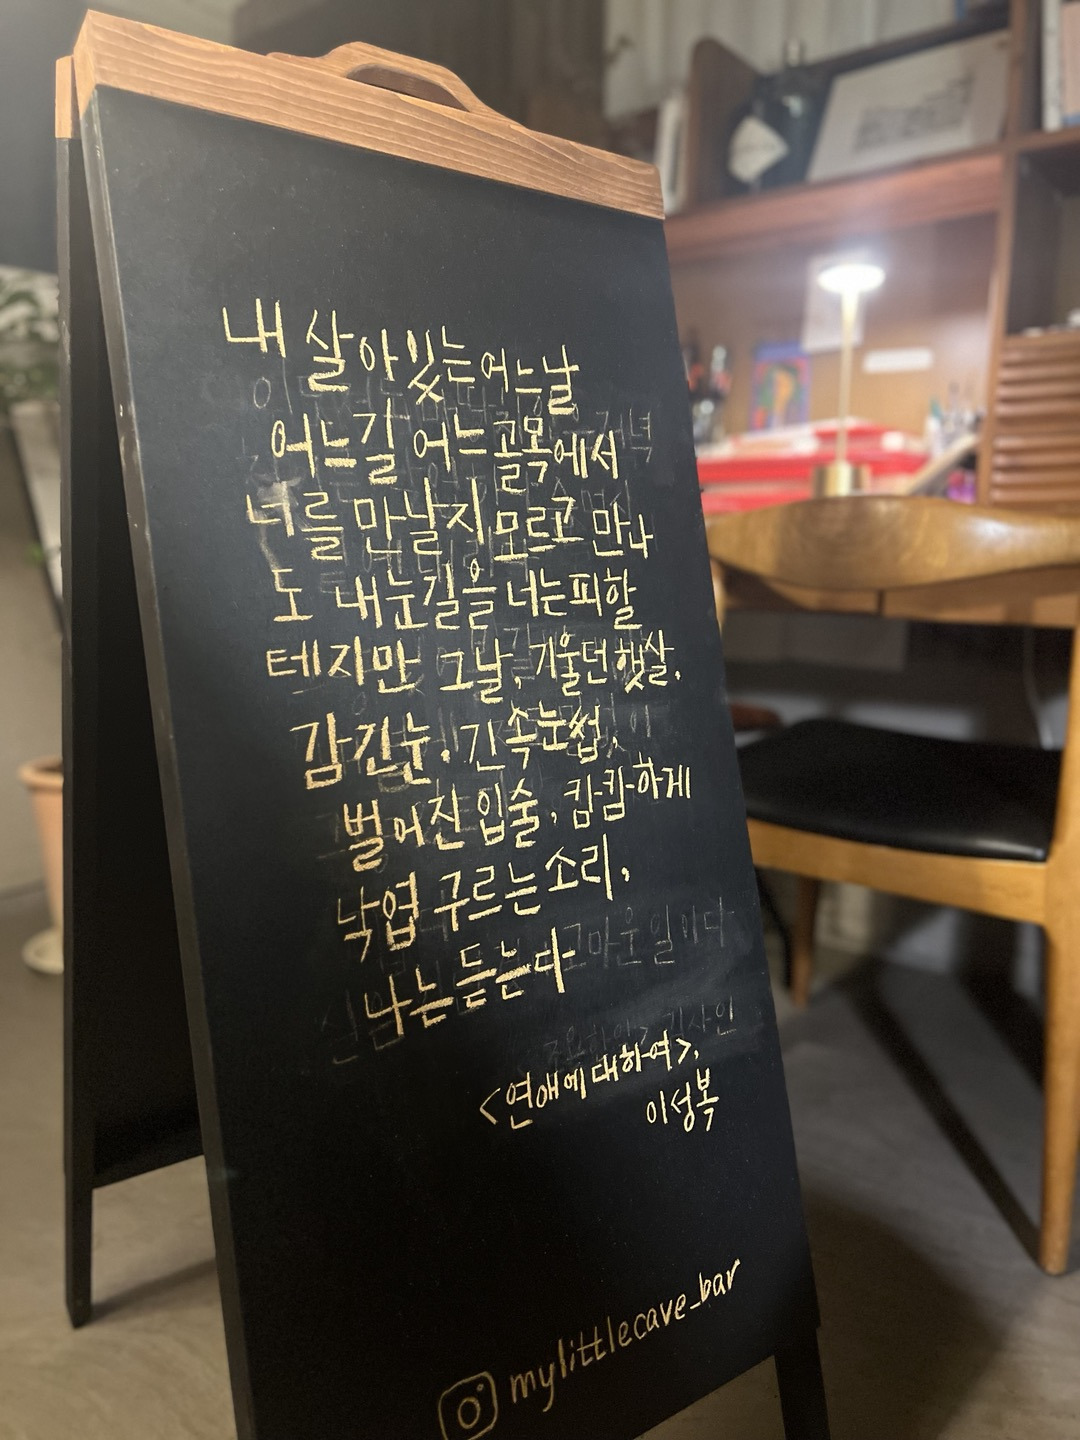 내 살아있는 어느날
어느길 어느 골목에서
너를 만날지 모르고 만나
도 내 눈길을 너는 피할
테지만 그날, 기울던 햇살,
감긴 눈, 긴 속눈썹,
벌어진 입술, 캄캄하게
낙엽 구르는 소리,
나는 듣는다
<연애에 대하여>,
이성복
mylittlecave_bar